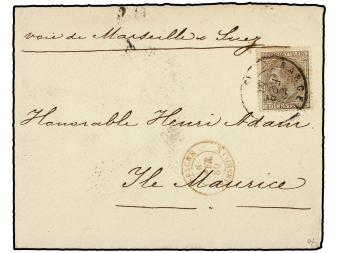 voie de Marseille & Suez
Honorable Henri Adam
Ile Maurice